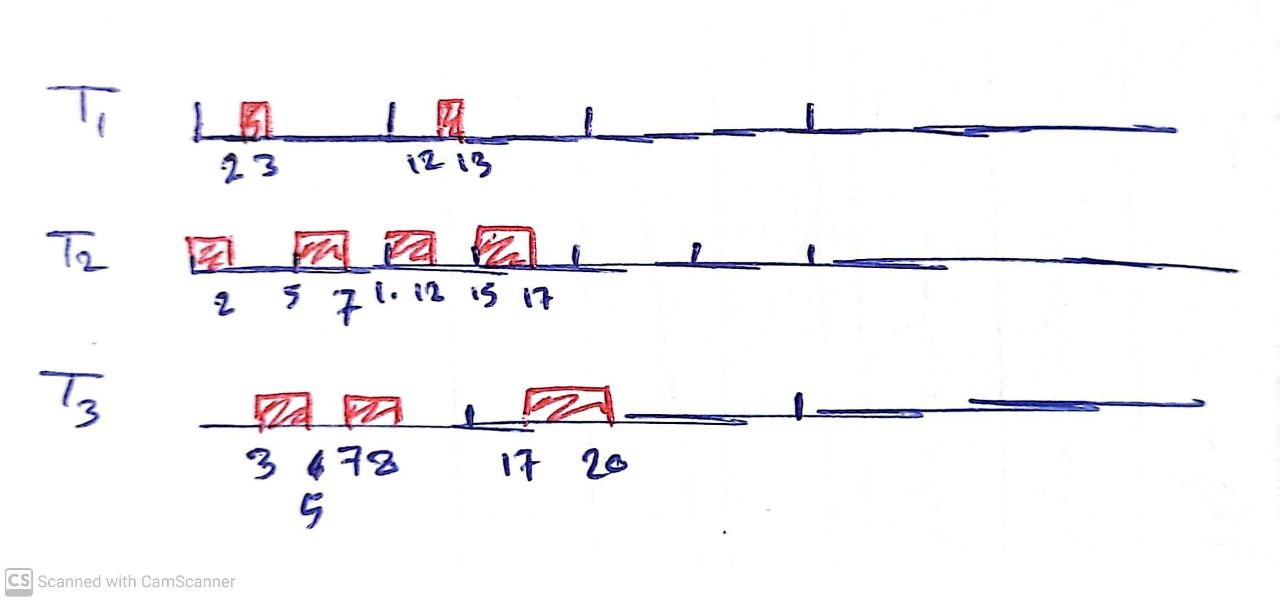 T1
2 3 12 13
T2
2 5 7 1. 12 15 17
T3
3 7 8 17 20
5
CS Scanned with CamScanner